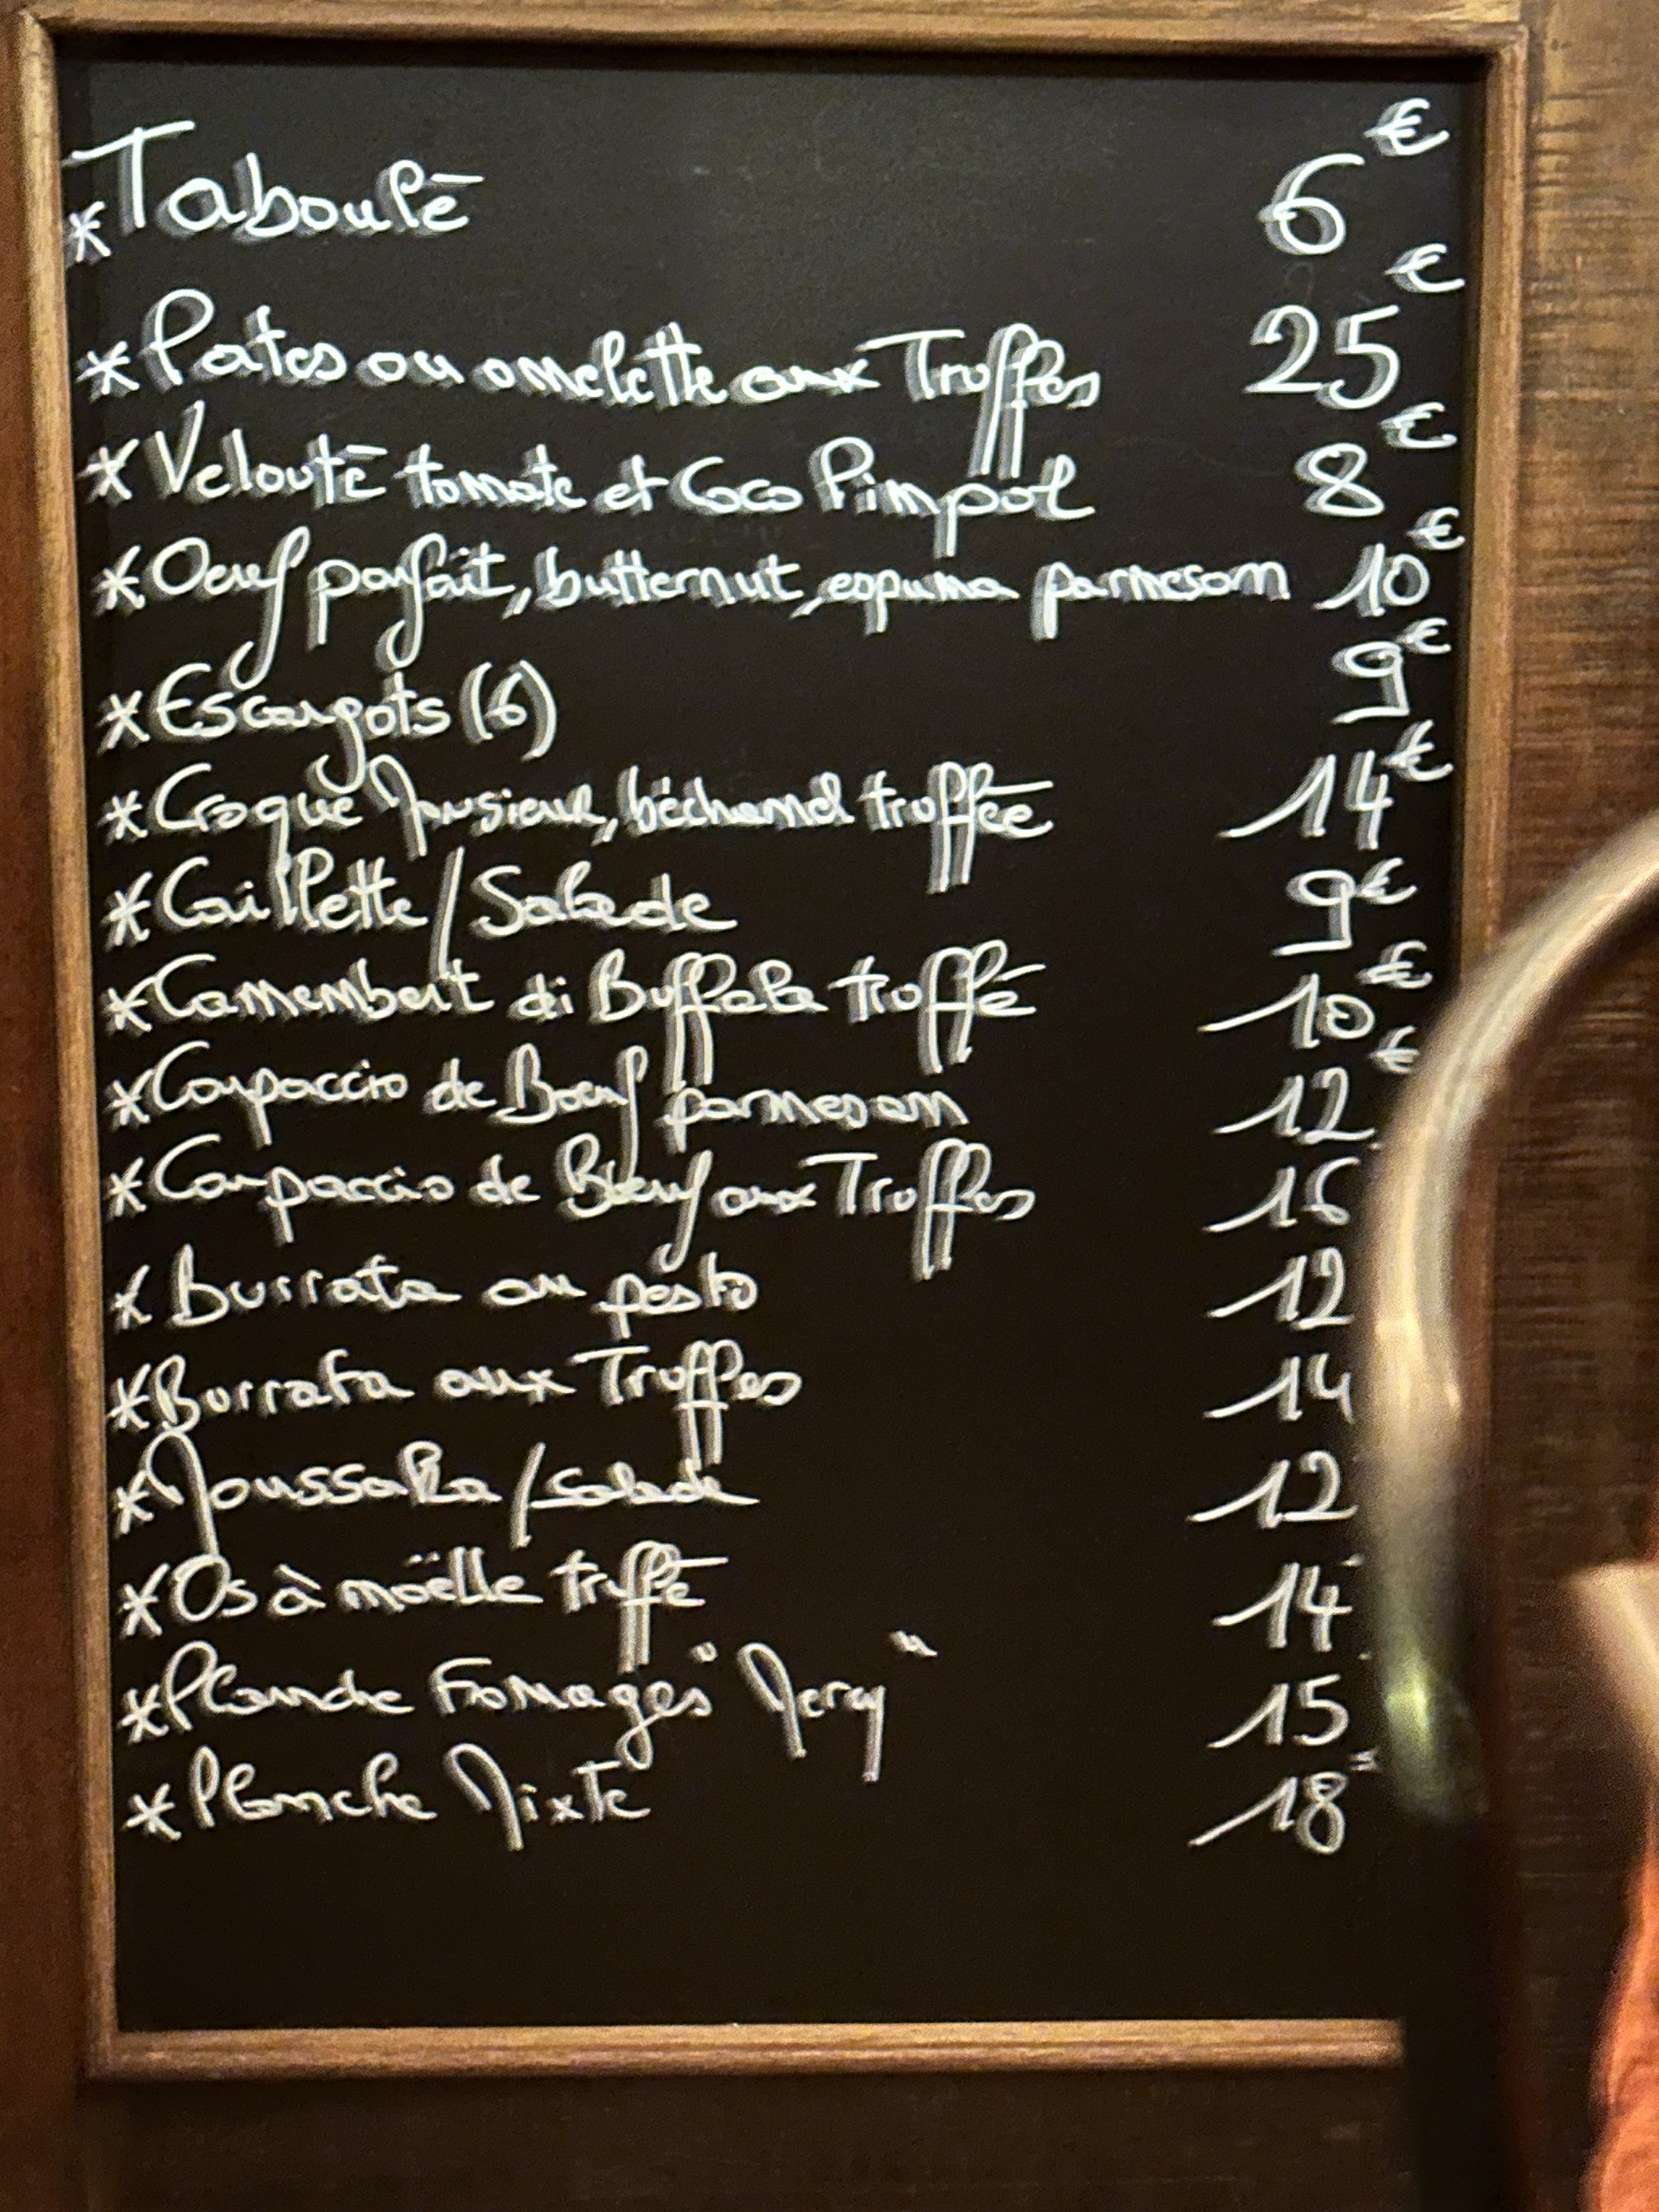 *Taboulé 6€
*Pates ou omelette aux Truffes 25€
*Velouté tomate et Coco Pimpol 8€
*Oeuf parfait, butternut, espuma parmesan 10€
*Escargots (6) 9€
*Croque Monsieur, béchamel truffée 14€
*Caillette/Salade 9€
*Camembert di Buffala truffé 10€
*Carpaccio de Boeuf parmesan 12€
*Carpaccio de Boeuf aux Truffes 16
*Burrata au pesto 12
*Burrata aux Truffes 14
*Moussaka/Salade 12
*Os à moëlle truffé 14
*Planche Fromages " " 15
*Planche Mixte 18